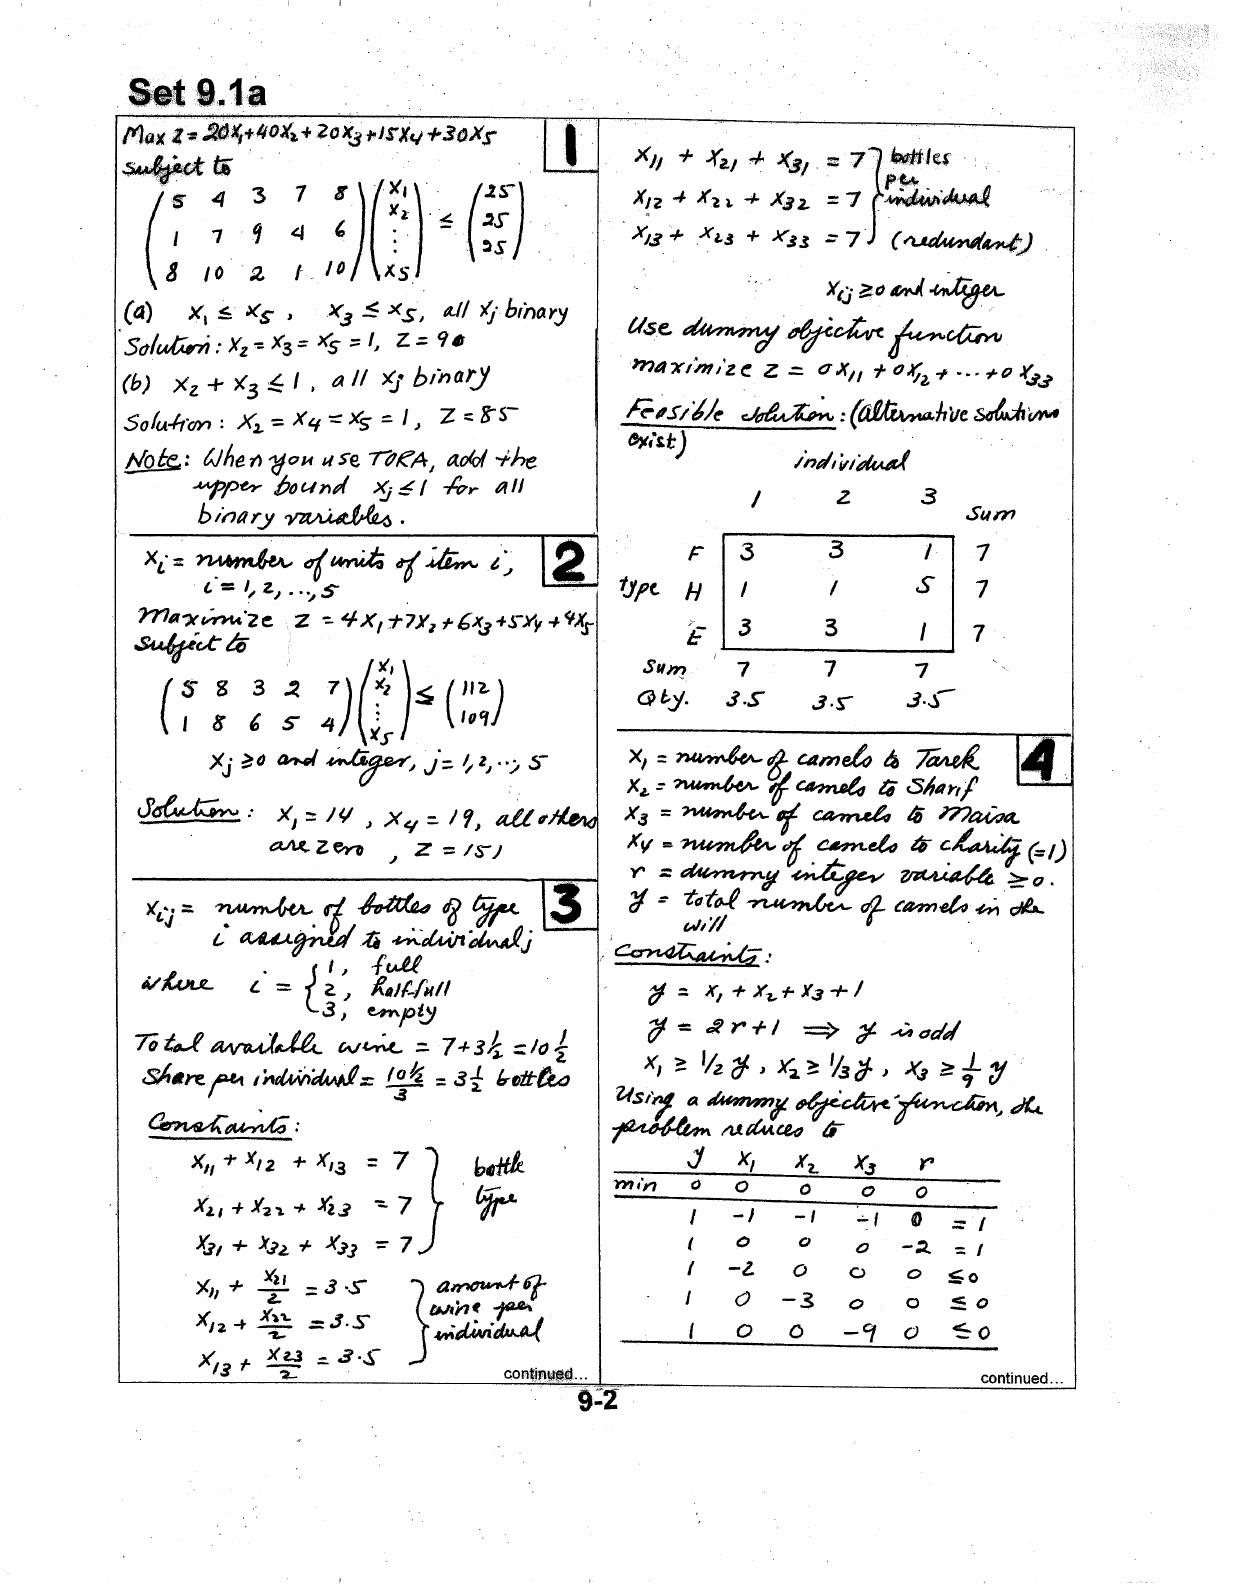 Set 9.1a
Max Z = 20X₁+40X₂+20X₃+15X₄+30X₅
1
subject to
( 5 4 3 7 8 ) ( X₁ ) ( 25 )
( 1 7 9 4 6 ) ( X₂ ⋮ ) ≤ ( 25 )
( 8 10 2 1 10 ) ( X₅ ) ( 25 )
(a) X₁ ≤ X₅ , X₃ ≤ X₅, all Xj binary
Solution : X₂ = X₃ = X₅ = 1, Z = 90
(b) X₂ + X₃ ≤ 1 , all Xj binary
Solution : X₂ = X₄ = X₅ = 1 , Z = 85
Note: When you use TORA, add the
upper bound Xj ≤ 1 for all
binary variables .
Xᵢ = number of units of item i,
2
i = 1, 2, ..., 5
Maximize Z = 4X₁+7X₂+6X₃+5X₄+4X₅
Subject to
( 5 8 3 2 7 ) ( X₁ X₂ ) ≤ ( 112 )
( 1 8 6 5 4 ) ( ⋮ X₅ ) ( 109 )
Xj ≥ 0 and integer, j = 1, 2, ..., 5
Solution : X₁ = 14 , X₄ = 19, all others
are zero , Z = 151
Xᵢⱼ = number of bottles of type
3
i assigned to individual j
where i = { 1, full
2, half-full
3, empty
Total available wine = 7+3½ = 10½
Share per individual = 10½/3 = 3½ bottles
Constraints :
X₁₁ + X₁₂ + X₁₃ = 7 } bottle
X₂₁ + X₂₂ + X₂₃ = 7 type
X₃₁ + X₃₂ + X₃₃ = 7
X₁₁ + X₂₁/2 = 3.5 } amount of
X₁₂ + X₂₂/2 = 3.5 wine per
X₁₃ + X₂₃/2 = 3.5 individual
continued...
X₁₁ + X₂₁ + X₃₁ = 7 } bottles
per
X₁₂ + X₂₂ + X₃₂ = 7 individual
X₁₃ + X₂₃ + X₃₃ = 7 (redundant)
Xᵢⱼ ≥ 0 and integer
Use dummy objective function
maximize Z = 0X₁₁ + 0X₁₂ + ... + 0X₃₃
Feasible solution : (alternative solutions
exist)
individual
1 2 3
Sum
F 3 3 1 7
type H 1 1 5 7
E 3 3 1 7
Sum 7 7 7
Qty. 3.5 3.5 3.5
X₁ = number of camels to Tarek
4
X₂ = number of camels to Sharif
X₃ = number of camels to Maisa
X₄ = number of camels to charity (=1)
r = dummy integer variable ≥ 0.
y = total number of camels in the
will
Constraints :
y = X₁ + X₂ + X₃ + 1
y = 2r+1 ⟹ y is odd
X₁ ≥ 1/2 y , X₂ ≥ 1/3 y , X₃ ≥ 1/9 y
Using a dummy objective function, the
problem reduces to
y X₁ X₂ X₃ r
min 0 0 0 0 0
1 -1 -1 -1 0 = 1
1 0 0 0 -2 = 1
1 -2 0 0 0 ≤ 0
1 0 -3 0 0 ≤ 0
1 0 0 -9 0 ≤ 0
continued...
9-2